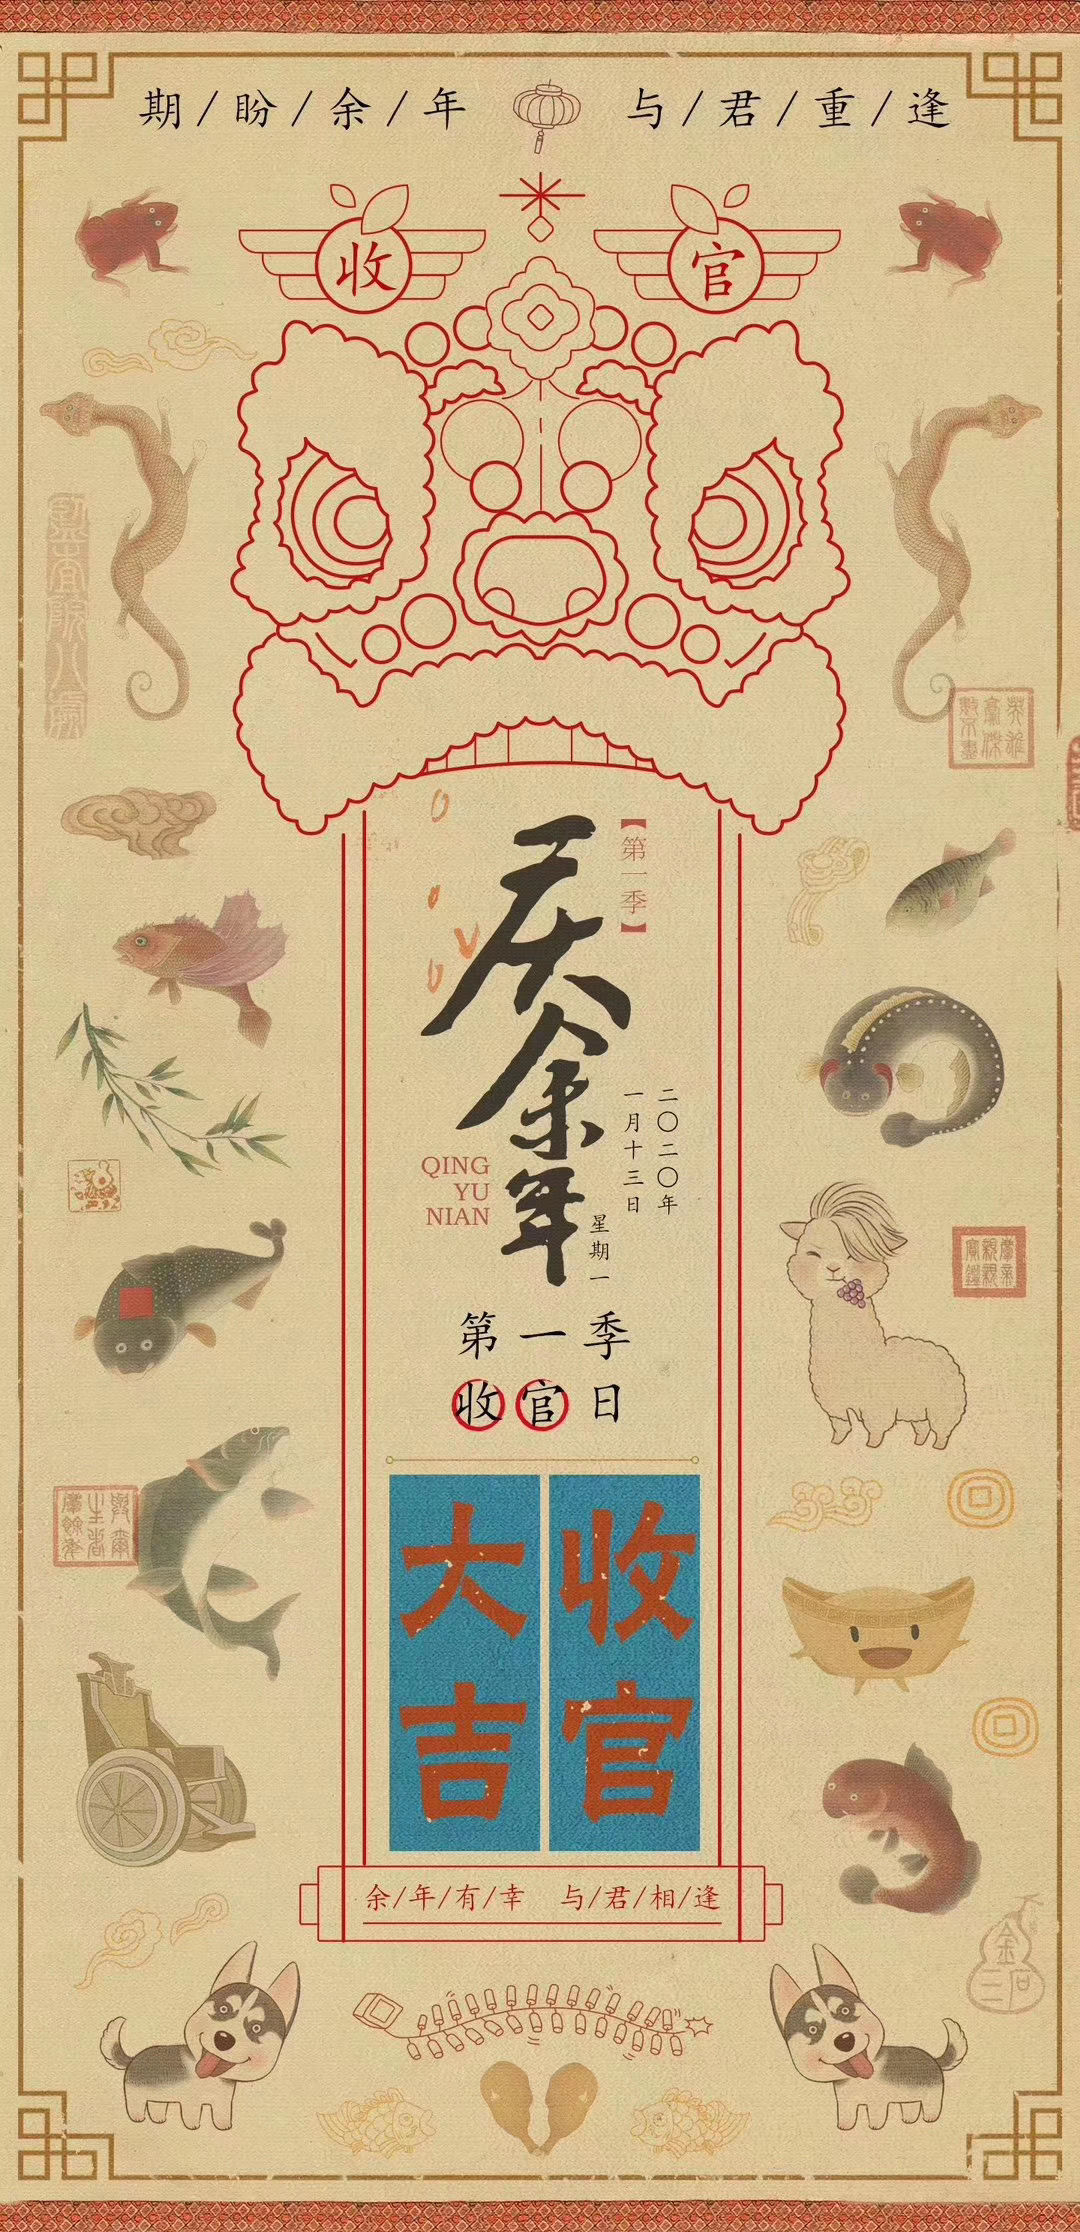 期/盼/余/年 与/君/重/逢
收 官
【第一季】
庆余年
QING
YU
NIAN
二〇二〇年
一月十三日
星期一
第一季
收官日
收官
大吉
余/年/有/幸 与/君/相/逢